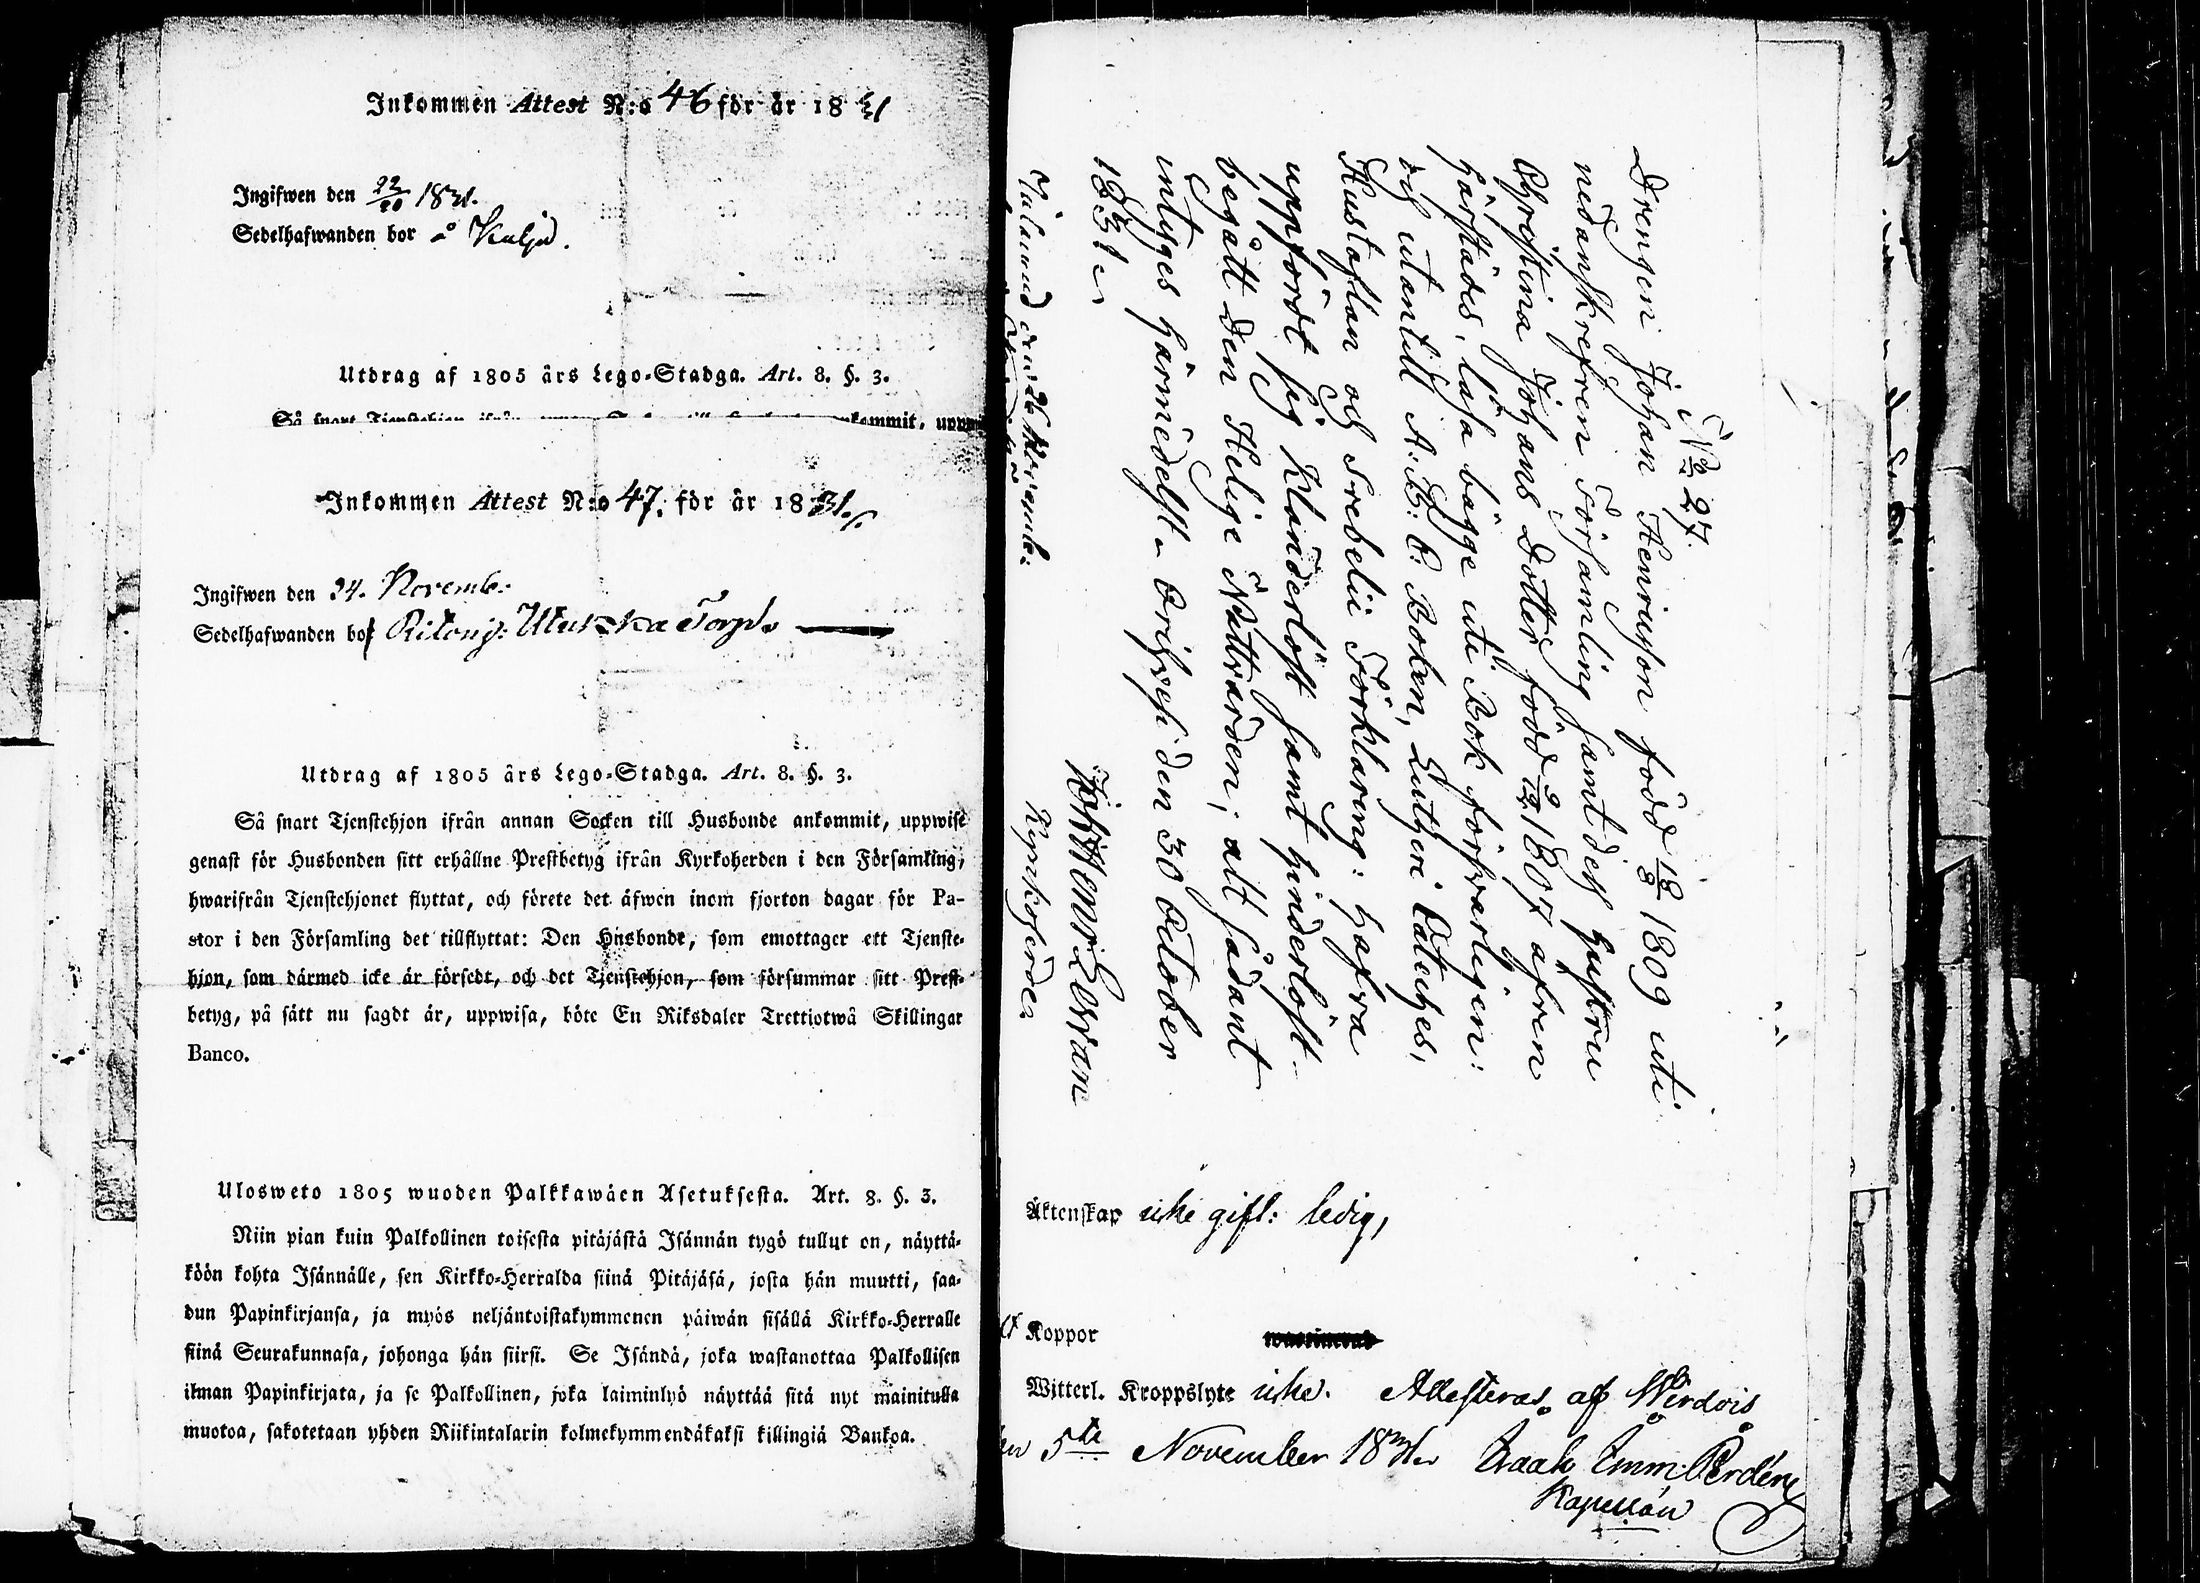 Inkommen Attest N:o 46 för år 1831
Ingifwen den 22/20 1831.
Sedelhafwanden bor å
Utdrag af 1805 års Lego-Stadga. Art. 8. §. 3.
Så snart Tjenstehjon ifrån ankommit,
Inkommen Attest N:o 47. för år 1831.
Ingifwen den 24. Novemb.
Sedelhafwanden bor
Utdrag af 1805 års Lego-Stadga. Art. 8. §. 3.
Så snart Tjenstehjon ifrån annan Socken till Husbonde ankommit, uppwise
genast för Husbonden sitt erhållne Prestbetyg ifrån Kyrkoherden i den Församling,
hwarifrån Tjenstehjonet flyttat, och förete det äfwen inom fjorton dagar för Pa-
stor i den Församling det tillflyttat: Den Husbonde, som emottager ett Tjenste-
hjon, som därmed icke är försedt, och det Tjenstehjon, som försummar sitt Prest-
betyg, på sätt nu sagdt är, uppwisa, böte En Riksdaler Trettiotwå Skillingar
Banco.
Ulosweto 1805 wuoden Palkkawäen Asetuksesta. Art. 8. §. 3.
Niin pian kuin Palkollinen toisesta pitäjästä Isännän tygö tullut on, näyttä-
köön kohta Isännälle, sen Kirkko-Herralda siinä Pitäjäsä, josta hän muutti, saa-
dun Papinkirjansa, ja myös neljäntoistakymmenen päiwän sisällä Kirkko-Herralle
siinä Seurakunnasa, johonga hän siirsi. Se Isändä, joka wastanottaa Palkollisen
ilman Papinkirjata, ja se Palkollinen, joka laiminlyö näyttää sitä nyt mainitulla
muotoa, sakotetaan yhden Riikintalarin kolmekymmendäkaksi killingiä Bankoa.
No 27.
Drengen Johan Henricsson född 18/8 1809 uti
nedanskrefven Församling samt dess hustru
Christina Johans Dotter född 9/12 1807 äfven
härstädes, läsa bägge uti Bok försvarligen:
och utantill A.B.C. Boken, Lutheri Cateches,
Hustaflan och Svebelii Förklaring: hafva
uppfördt sig klanderlöst samt hinderlöst
begått den Helige Nattvarden; alt sådant
intyges härmedelst. den 30 October
1831.
Kyrkoherde
den 26
Äktenskap icke gift: ledig,
Koppor
Witterl. Kroppslyte icke. Attesteras af Wirdois
5te November 1831 Isaak Emm.
Kapellan